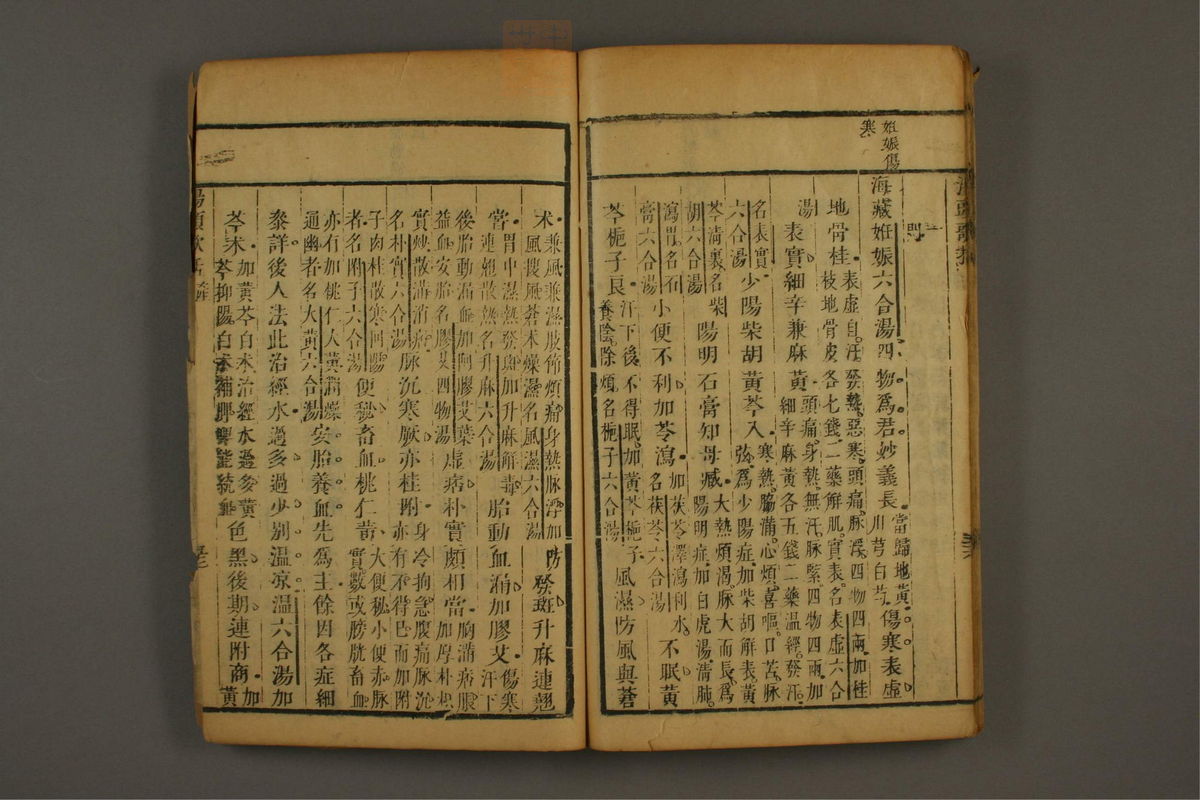 湯頭歌括
妊娠傷
寒
海藏妊娠六合湯。四物為君妙義長。當歸地黃。川芎白芍。傷寒表虛
地骨桂。表虛自汗。發熱惡寒。頭痛脈浮。四物四兩加桂
枝地骨皮各七錢。二藥解肌實表。名表虛六合
湯 表實細辛兼麻黃。頭痛身熱無汗。脈緊。四物四兩加
細辛麻黃各五錢二藥溫經發汗。
名表實
六合湯 少陽柴胡黃芩入。寒熱脇滿。心煩喜嘔。口苦脈
弦。為少陽症。加柴胡解表黃
芩清裏。名柴
胡六合湯 陽明石膏知母臧。大熱煩渴。脈大而長。為
陽明症。加白虎湯。清肺
瀉胃。名石
膏六合湯 小便不利加苓瀉。加茯苓澤瀉利水。
名茯苓六合湯 不眠黃
芩梔子良。汗下後。不得眠。加黃芩梔子
養陰。除煩。名梔子六合湯 風濕防風與蒼
朮。兼風兼濕肢節煩痛身熱脈浮加防
風搜風蒼朮燥濕名風濕六合湯 發斑升麻連翹
當。胃中濕熱發斑加升麻解毒
連翹散熱名升麻六合湯 胎動血漏加膠艾。傷寒
汗下
後胎動漏血加阿膠艾葉
益血安胎名膠艾四物湯 虛痞朴實頗相當。胸滿痞脹
加厚朴枳
實炒散滿消痞
名朴實六合湯 脈沉寒厥亦桂附。身冷拘急腹痛脈沉
亦有不得已而加附
子肉桂散寒回陽
者名附子六合湯 便秘畜血桃仁黃。大便秘小便赤脈
實數或膀胱畜血
亦有加桃仁大黃潤燥
通幽者名大黃六合湯 安胎養血先為主餘因各症細
參詳後人法此治經水過多過少別溫涼溫六合湯加
芩朮。加黃芩白朮治經水過多黃
芩抑陽白朮補脾脾能統血 色黑後期連附商。加
黃